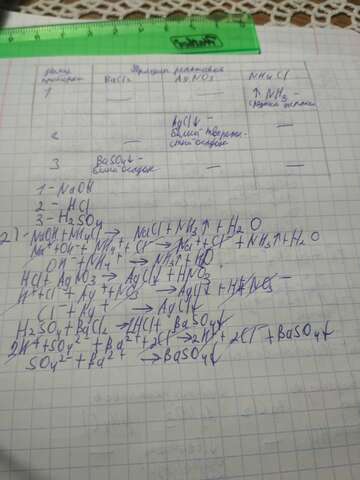 номер пробирки | Функции реактивов
BaCl₂ | AgNO₃ | NH₄Cl
1 | — | | ↑NH₃ –
2 | — | AgCl↓ – белый творожистый осадок | —
3 | BaSO₄↓ – белый осадок | — | —
1 – NaOH
2 – HCl
3 – H₂SO₄
2) – NaOH + NH₄Cl → NaCl + NH₃↑ + H₂O
Na⁺ + OH⁻ + NH₄⁺ + Cl⁻ → Na⁺ + Cl⁻ + NH₃↑ + H₂O
OH⁻ + NH₄⁺ → NH₃↑ + H₂O
HCl + AgNO₃ → AgCl↓ + HNO₃
H⁺ + Cl⁻ + Ag⁺ + NO₃⁻ → AgCl↓ + H⁺ + NO₃⁻
Cl⁻ + Ag⁺ → AgCl↓
H₂SO₄ + BaCl₂ → 2HCl + BaSO₄↓
2H⁺ + SO₄²⁻ + Ba²⁺ + 2Cl⁻ → 2H⁺ + 2Cl⁻ + BaSO₄↓
SO₄²⁻ + Ba²⁺ → BaSO₄↓